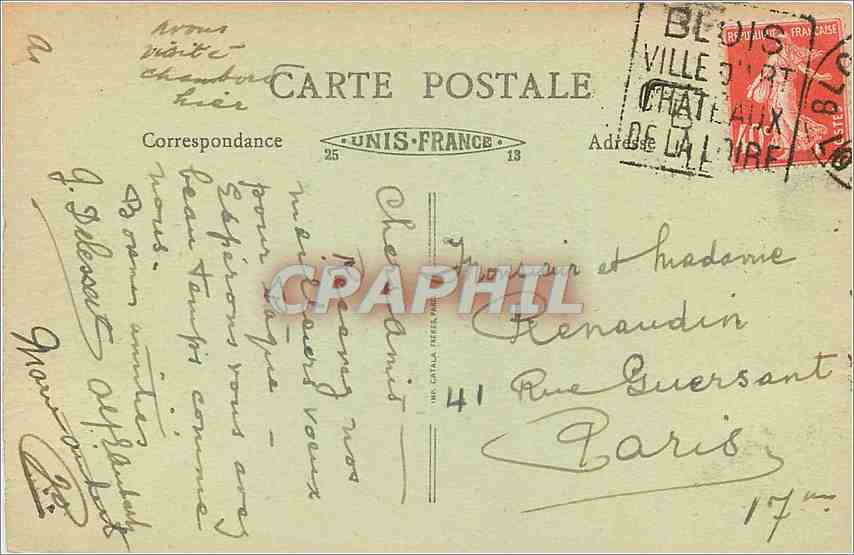 avons
visité
chambord
hier
CARTE POSTALE
Correspondance
UNIS-FRANCE
25 13
Adresse
BLOIS
VILLE D'ART
CHATEAUX
DE LA LOIRE
REPUBLIQUE FRANÇAISE
POSTES
Chers amis
Recevez nos
meilleurs voeux
pour Pâques -
Espérons vous avez
beau temps comme
nous.
Bonnes amitiés
J. Delessart
IMP. CATALA FRÈRES, PARIS
Monsieur et Madame
Renaudin
41 Rue Guersant
Paris
17me
CPARPHIL